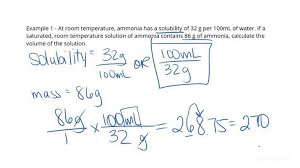 Example 1 - At room temperature, ammonia has a solubility of 32 g per 100mL of water. If a
saturated, room temperature solution of ammonia contains 86 g of ammonia, calculate the
volume of the solution.
Solubility = 32g/100mL OR 100mL/32g
mass = 86g
86g/1 × 100mL/32g = 268.75 = 270